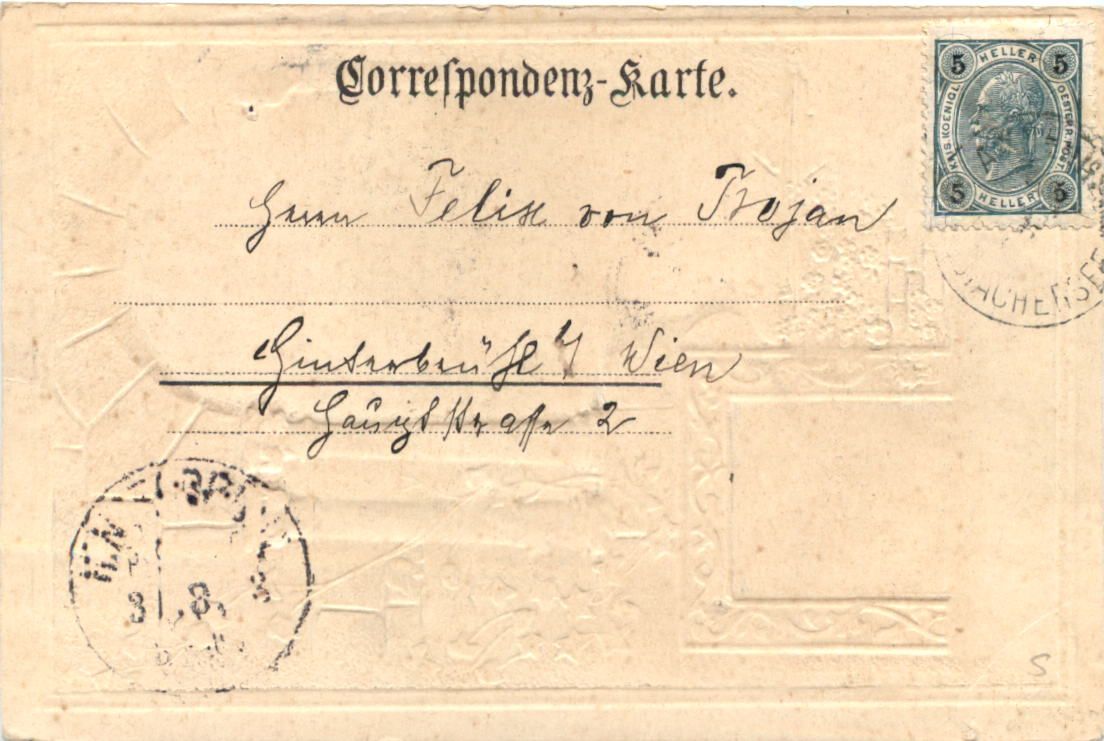 Correspondenz-Karte.
5 HELLER 5
KAIS. KOENIGL. OESTERR. POST.
5 HELLER 5
Herrn Felix von Trojan
ACHENSEE
Hinterbrühl b/ Wien
Hauptstraße 2
8.
S